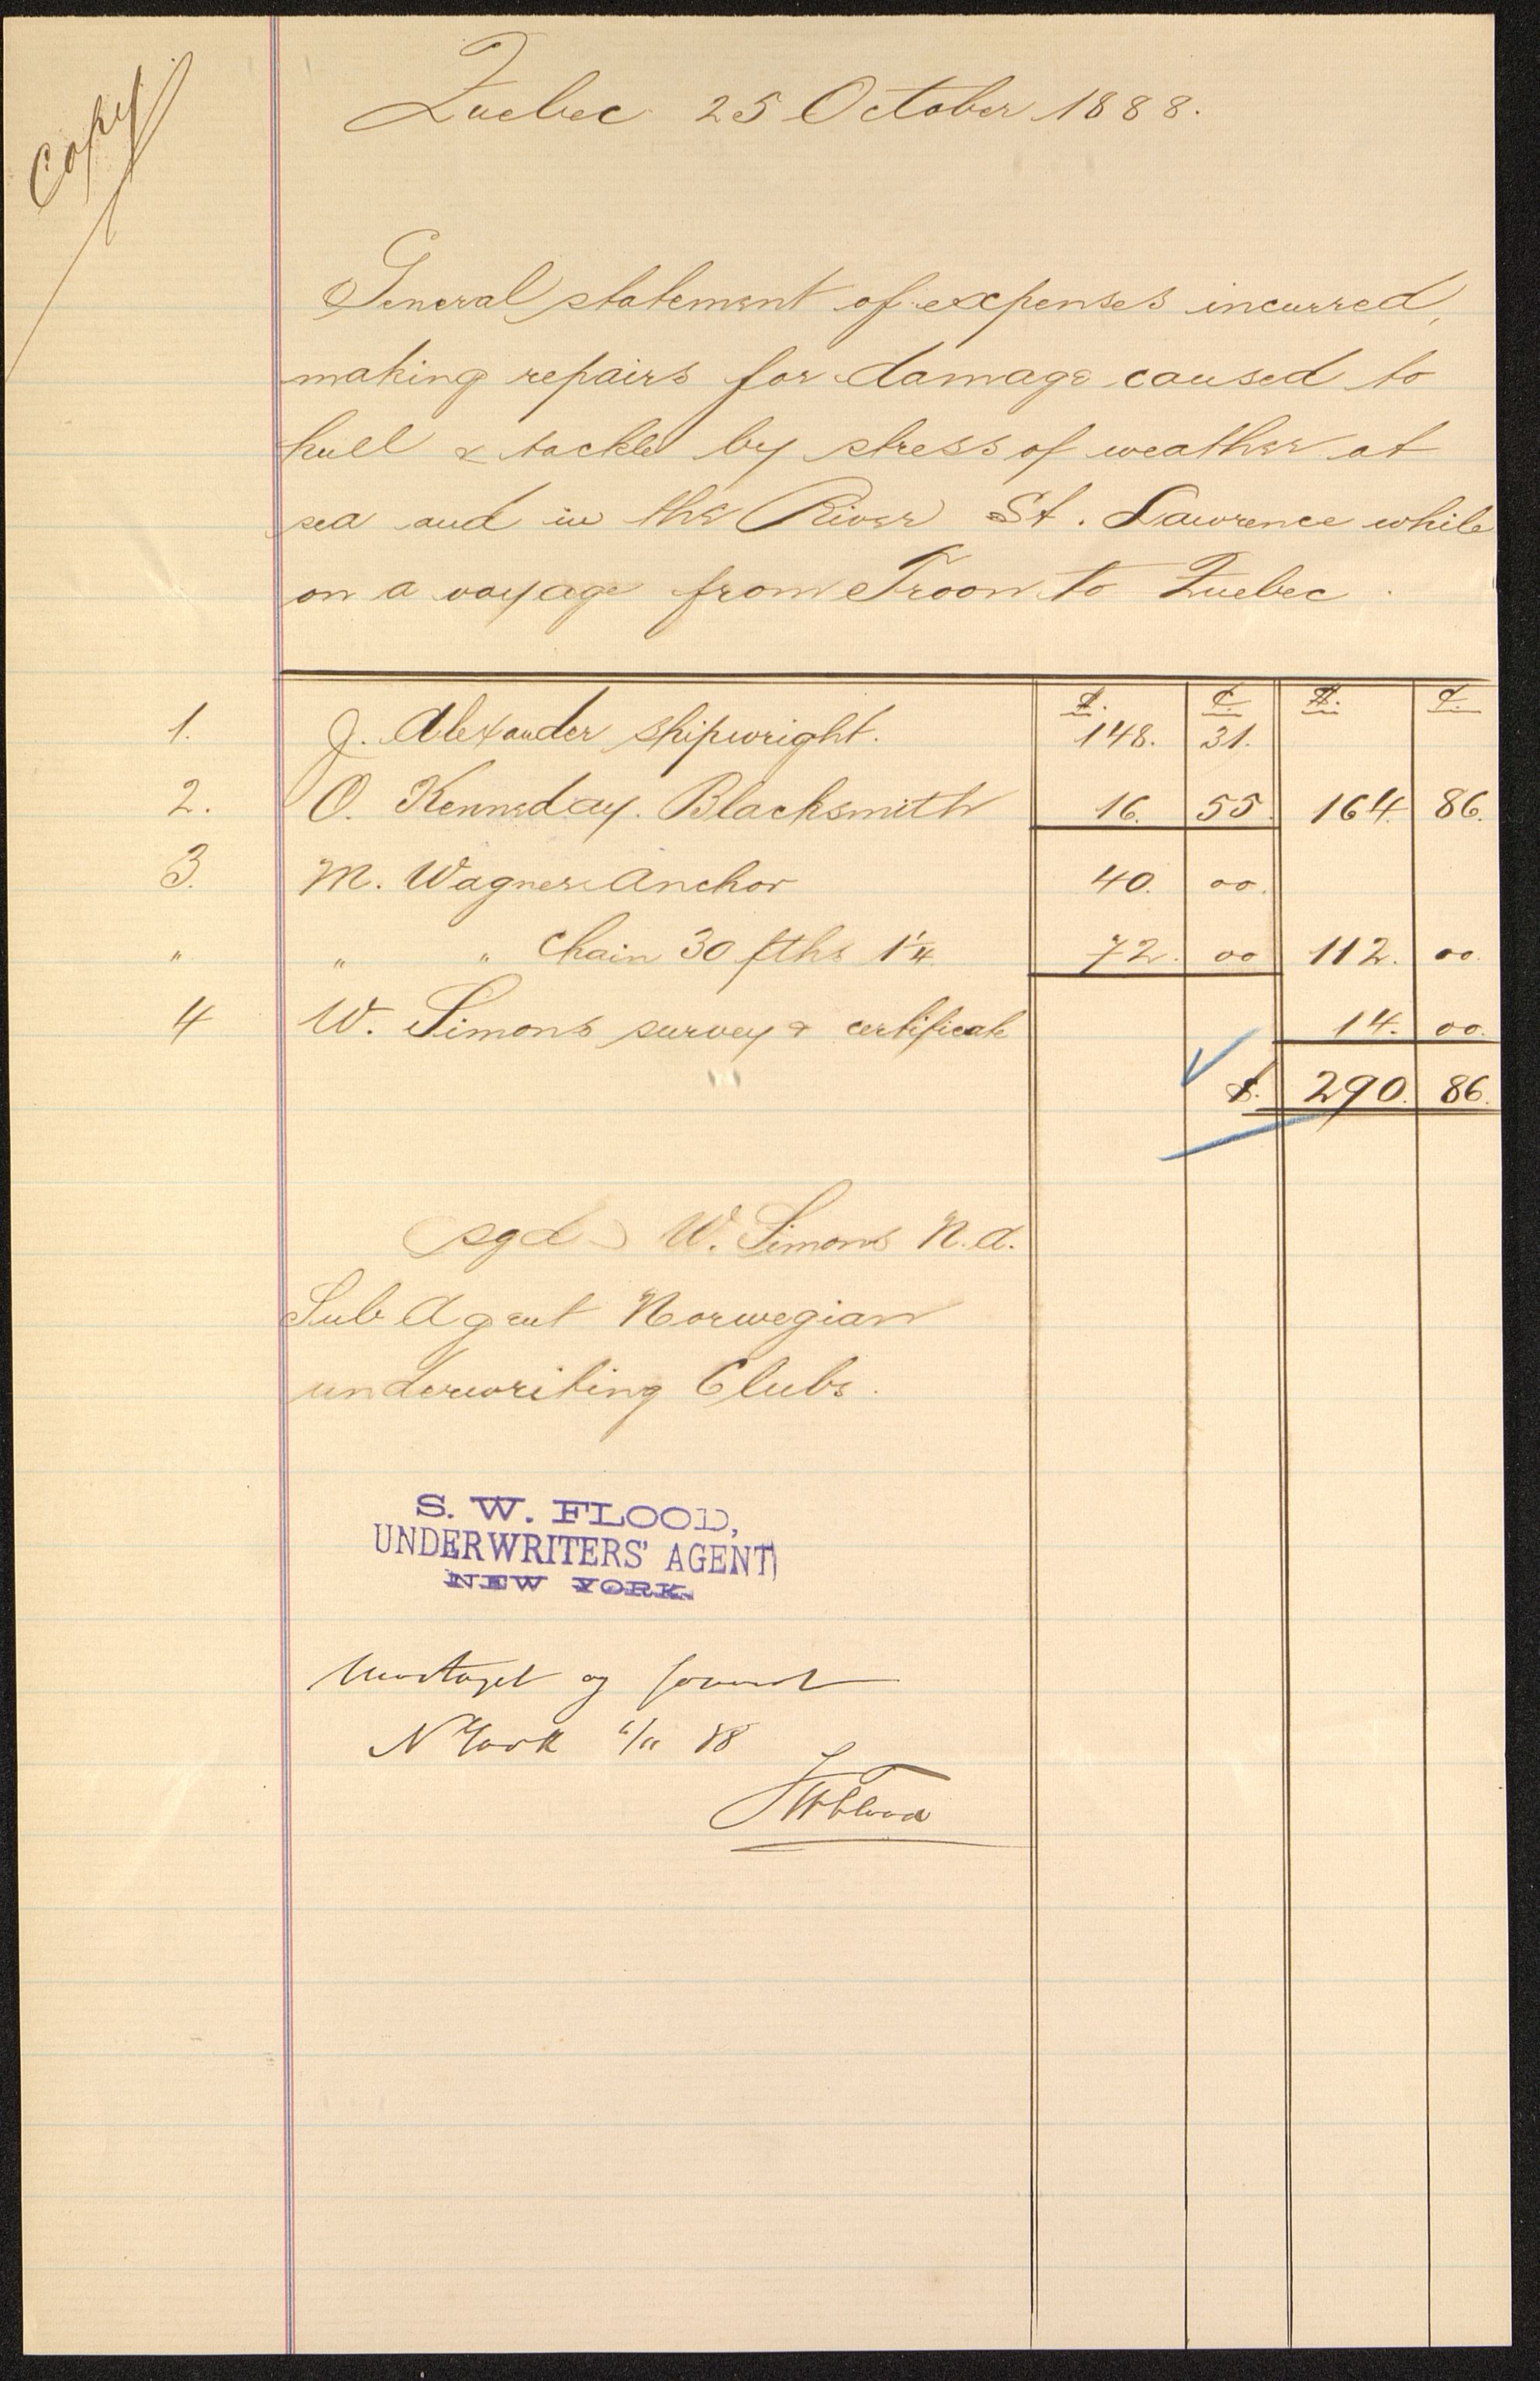 Copy
Quebec 25 October 1888.
General statement of expenses incurred,
making repairs for damage caused to
hull & tackle by stress of weather at
sea and in the River St. Lawrence while
on a voyage from Troon to Quebec.
$. c. $. c.
1. J. Alexander shipwright. 148. 31.
2. O. Kenneday. Blacksmith 16. 55. 164. 86.
3. M. Wagner Anchor 40. 00.
" " " Chain 30 fths 1 1/4 72. 00 112. 00.
4 W. Simons survey & certificate 14. 00.
$. 290. 86.
(sgd) W. Simons N.A.
Sub Agent Norwegian
underwriting Clubs.
S. W. FLOOD,
UNDERWRITERS' AGENT
NEW YORK.
Modtaget og
N York /11 88
SWFlood